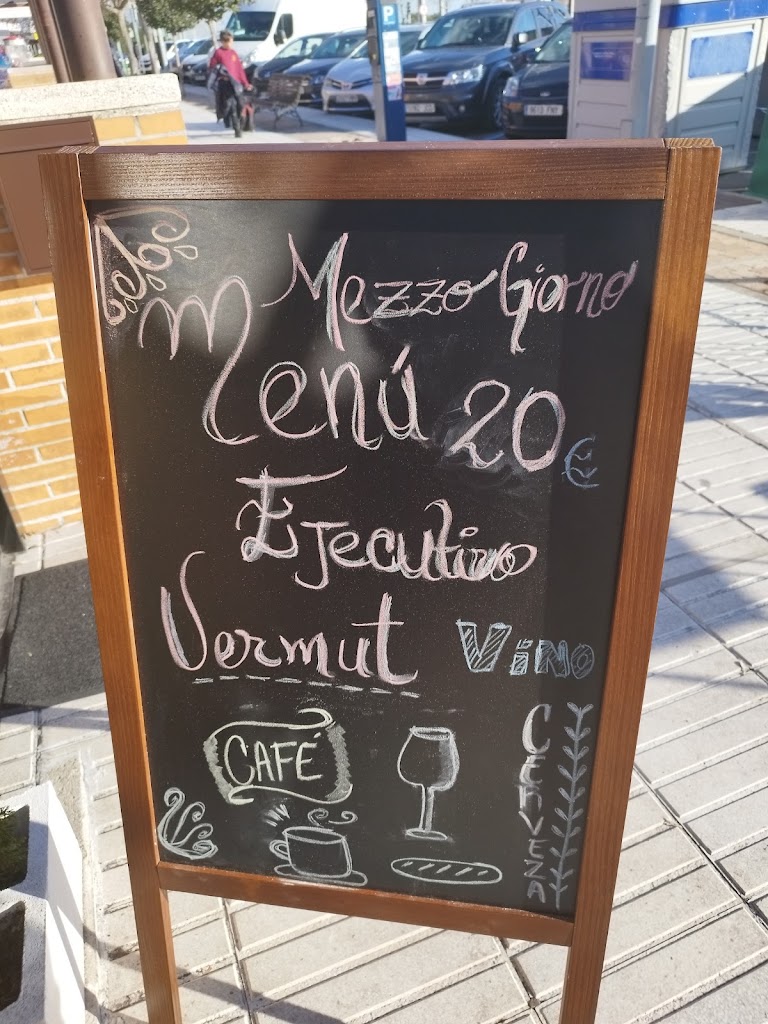 Mezzo Giorno
Menú 20 €
Ejecutivo
Vermut
Vino
CAFÉ
CERVEZA
P